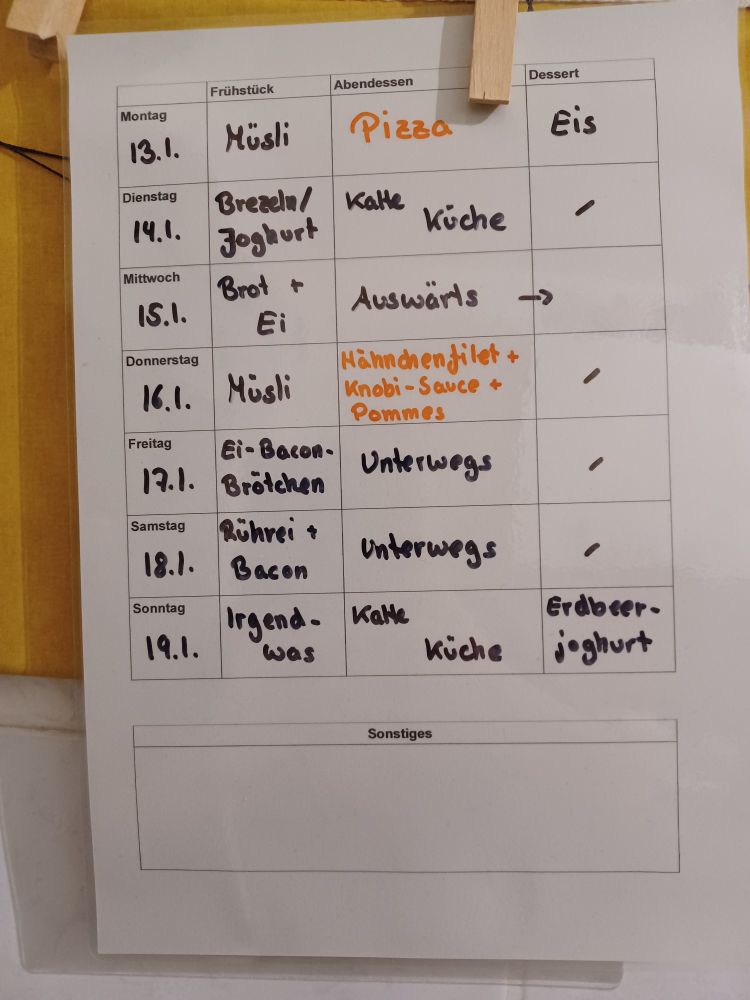 Frühstück Abendessen Dessert
Montag
13.1. Müsli Pizza Eis
Dienstag
14.1. Brezeln/ Joghurt Kalte Küche /
Mittwoch
15.1. Brot + Ei Auswärts →
Donnerstag
16.1. Müsli Hähnchenfilet + Knobi-Sauce + Pommes /
Freitag
17.1. Ei-Bacon-Brötchen Unterwegs /
Samstag
18.1. Rührei + Bacon Unterwegs /
Sonntag
19.1. Irgend-was Kalte Küche Erdbeer-joghurt
Sonstiges